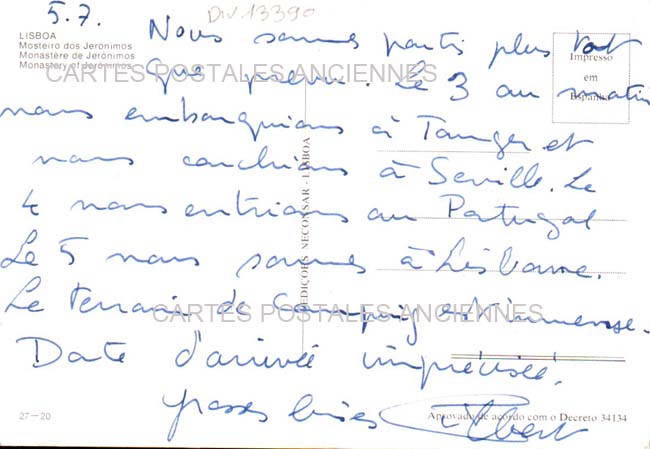 5.7.
Div 13390
LISBOA
Mosteiro dos Jerónimos
Monastère de Jerónimos
Monastery of Jerónimos
Impresso
em
Espanha
Nous sommes partis plus tot
que prévu. Le 3 au matin
nous embarquions à Tanger et
nous couchions à Seville. Le
4 nous entrions au Portugal
Le 5 nous sommes à Lisbonne.
Le terrain de Camping est immense.
Date d'arrivée imprecise.
grosses bises
CARTES POSTALES ANCIENNES
CARTES POSTALES ANCIENNES
EDIÇÕES NECONSAR - LISBOA
27—20
Aprovado de acordo com o Decreto 34134